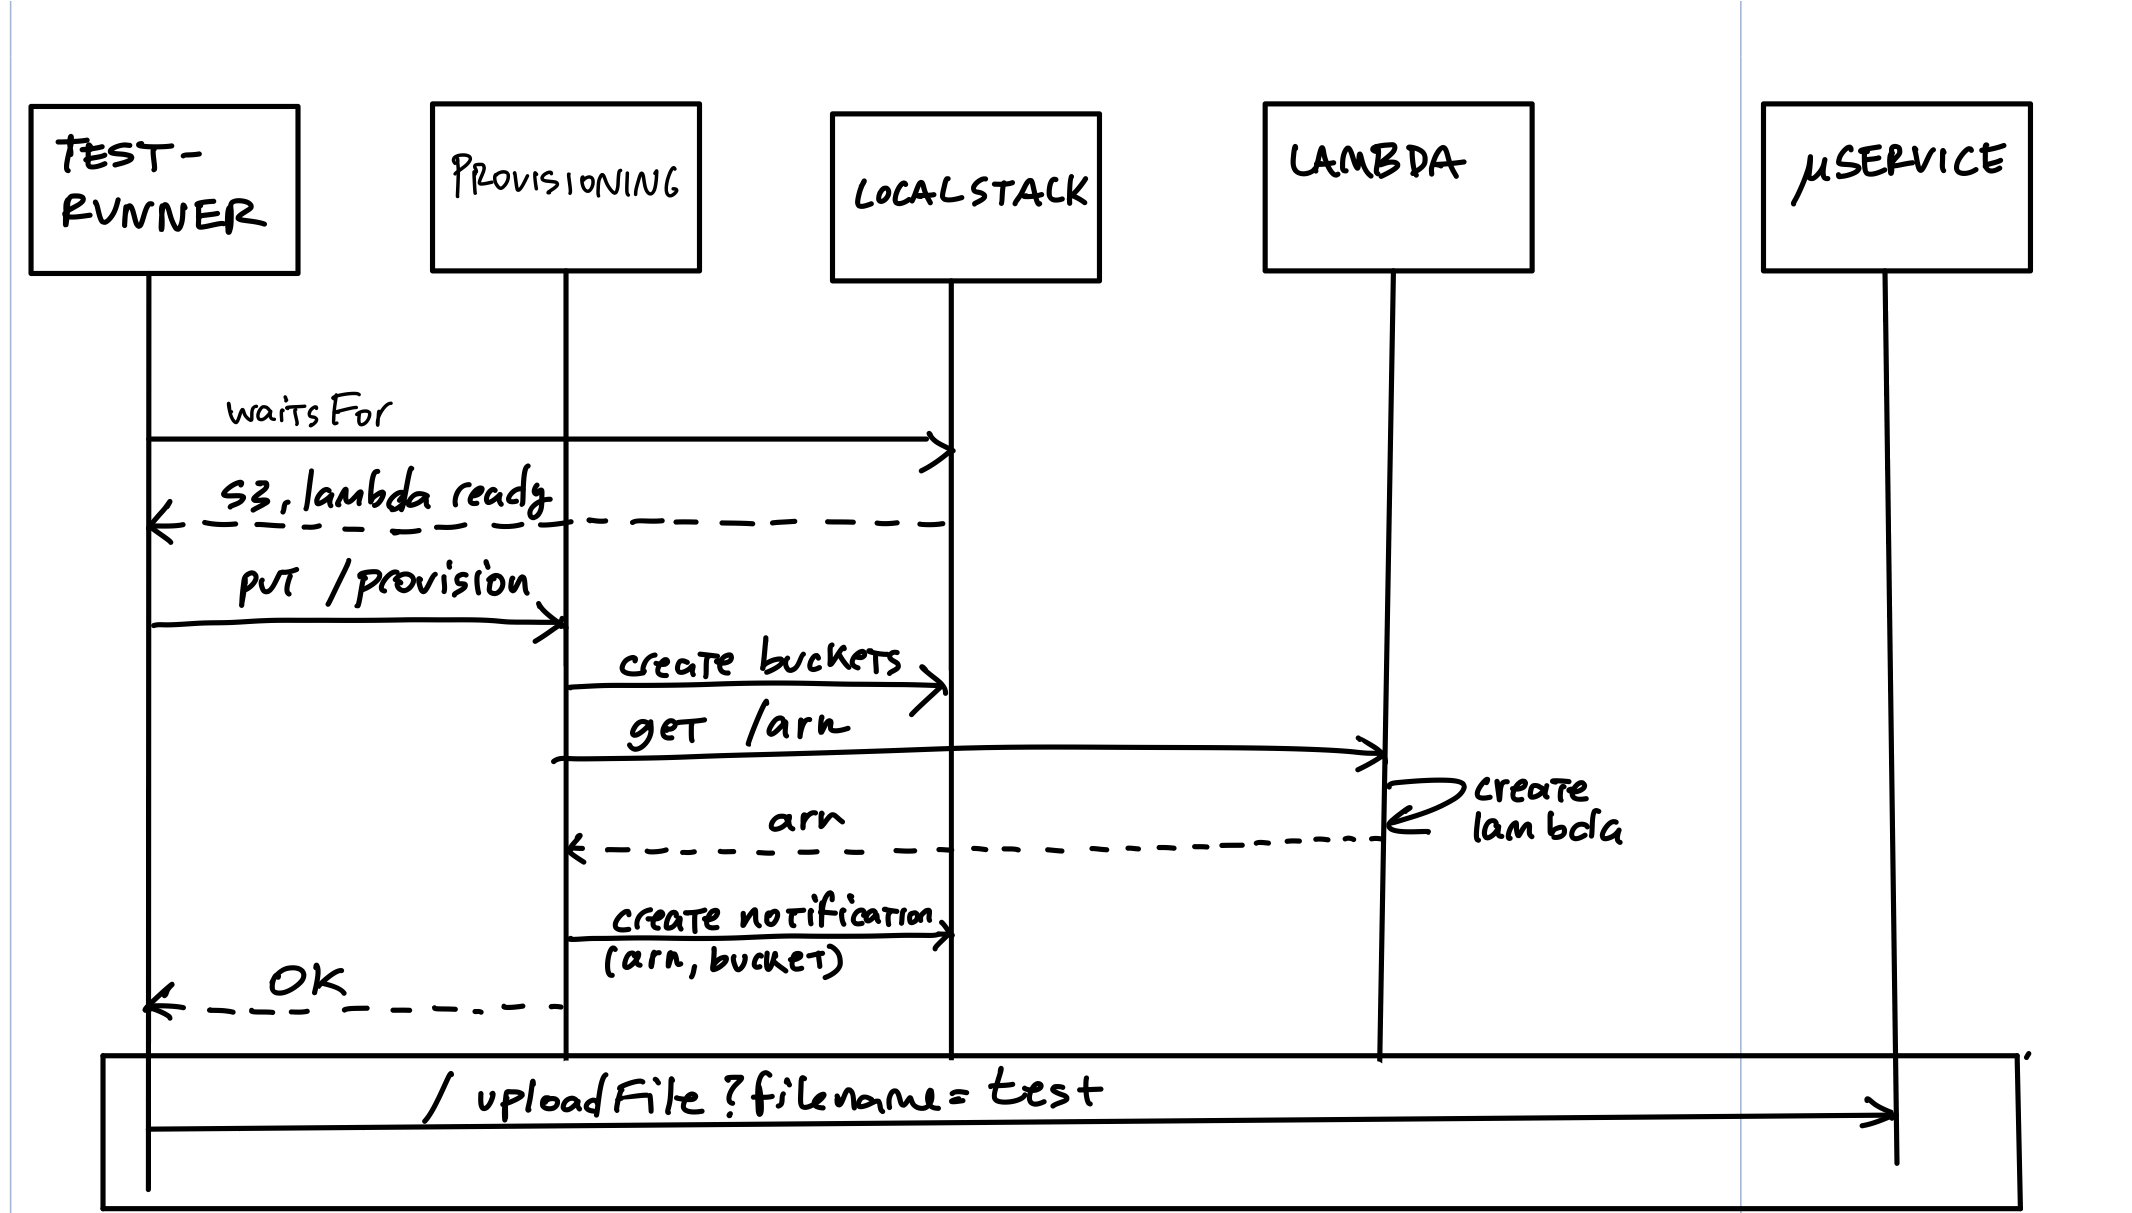 TEST-
RUNNER
PROVISIONING
LOCALSTACK
LAMBDA
μSERVICE
waitsFor
s3, lambda ready
put /provision
create buckets
get /arn
create
lambda
arn
create notification
(arn, bucket)
OK
/uploadFile?filename=test